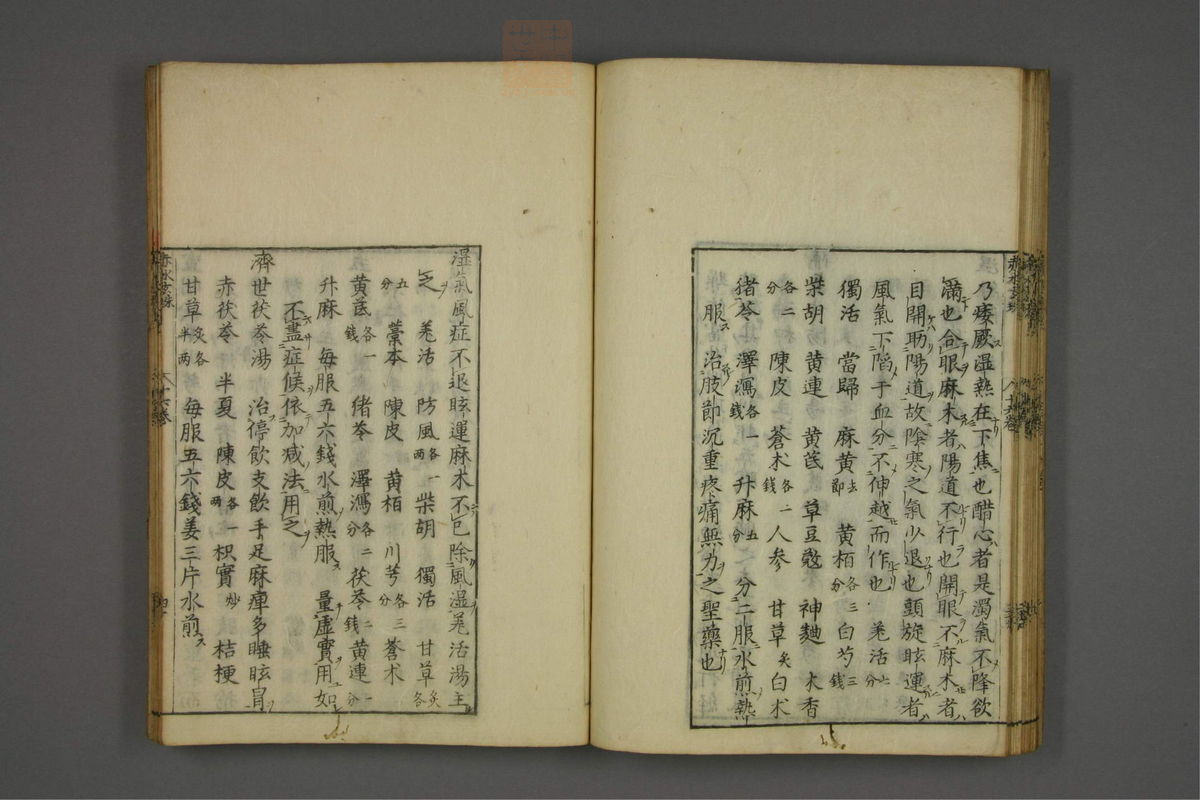 乃痿厥湿熱在下焦也醋心者是濁氣不降欲
滿也合眼麻木者陽道不行也開眼不麻木者
目開助陽道故陰寒之氣少退也頭旋眩運者
風氣下䧟于血分不伸越而作也 羌活七分
獨活 當歸 麻黄去節 黄栢各三分 白芍三錢
柴胡 黄連 黄茋 草豆蔲 神麯 木香
各二分 陳皮 蒼术各一錢 人參 甘草炙 白术
猪苓 澤瀉各一錢 升麻五分 分二服水煎熱
服 治肢節沉重疼痛無力之聖藥也
湿氣風症不退眩運麻木不已除風湿羌活湯主
之 羌活 防風各一兩 柴胡 獨活 甘草炙各
五分 藁本 陳皮 黄栢 川芎各三分 蒼术
黄茋各一錢 猪苓 澤瀉各二分 茯苓二錢 黄連一分
升麻 毎服五六錢水煎熱服 量虚實用如
不盡症候依加减法用之
濟世茯苓湯 治停飲支飲手足麻痺多睡眩冒
赤茯苓 半夏 陳皮各一兩 枳實炒 桔梗
甘草炙各半兩 毎服五六錢姜三片水煎